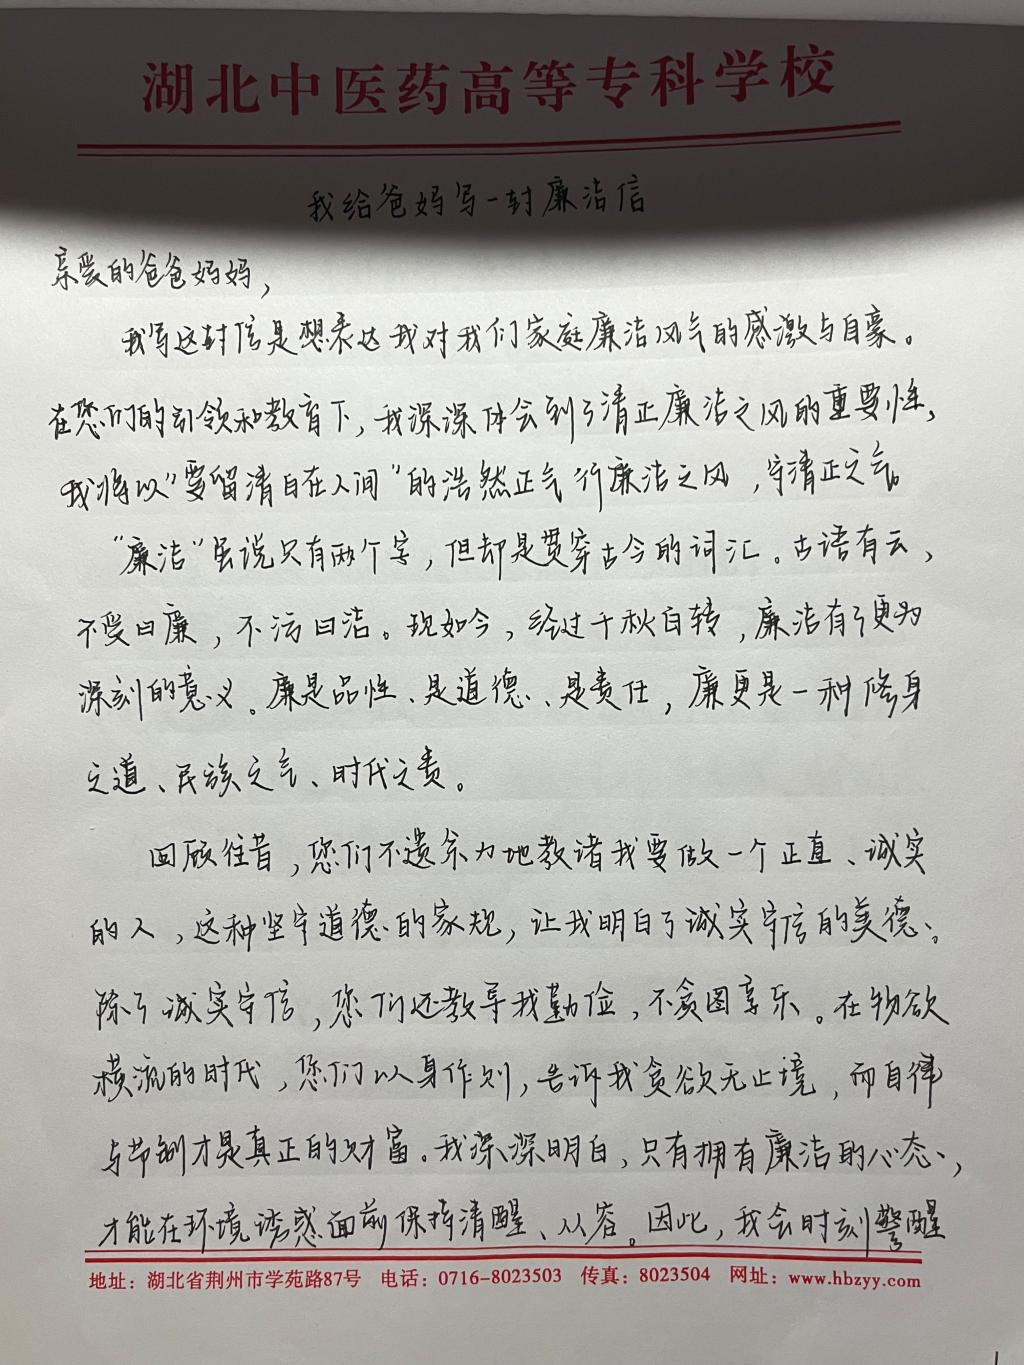 湖北中医药高等专科学校
我给爸妈写一封廉洁信
亲爱的爸爸妈妈，
我写这封信是想表达我对我们家庭廉洁风气的感激与自豪。
在您们的引领和教育下，我深深体会到了清正廉洁之风的重要性，
我将以“要留清白在人间”的浩然正气行廉洁之风，守清正之气。
“廉洁”虽说只有两个字，但却是贯穿古今的词汇。古语有云，
不受曰廉，不污曰洁。现如今，经过千秋百转，廉洁有了更为
深刻的意义。廉是品性、是道德、是责任，廉更是一种修身
之道、民族之气、时代之责。
回顾往昔，您们不遗余力地教诸我要做一个正直、诚实
的人，这种坚守道德的家规，让我明白了诚实守信的美德、
除了诚实守信，您们还教导我勤俭，不贪图享乐。在物欲
横流的时代，您们以身作则，告诉我贪欲无止境，而自律
与节制才是真正的财富。我深深明白，只有拥有廉洁的心态，
才能在环境诱惑面前保持清醒、从容。因此，我会时刻警醒
地址：湖北省荆州市学苑路87号 电话：0716-8023503 传真：8023504 网址：www.hbzyy.com